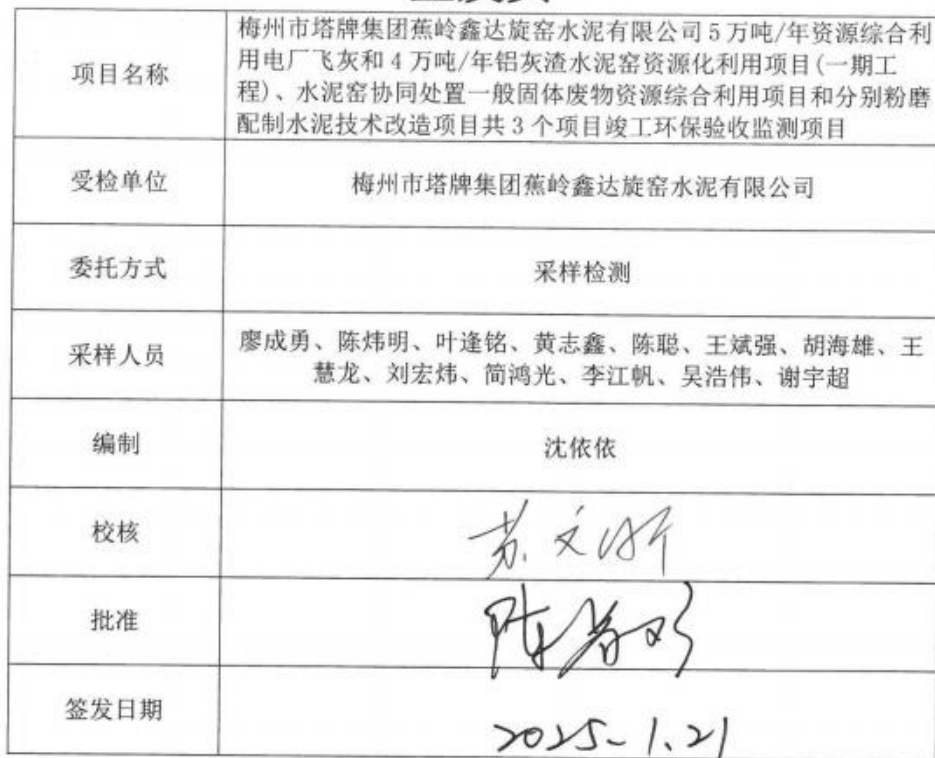 项目名称
梅州市塔牌集团蕉岭鑫达旋窑水泥有限公司5万吨/年资源综合利
用电厂飞灰和4万吨/年铝灰渣水泥窑资源化利用项目(一期工
程)、水泥窑协同处置一般固体废物资源综合利用项目和分别粉磨
配制水泥技术改造项目共3个项目竣工环保验收监测项目
受检单位
梅州市塔牌集团蕉岭鑫达旋窑水泥有限公司
委托方式
采样检测
采样人员
廖成勇、陈炜明、叶逢铭、黄志鑫、陈聪、王斌强、胡海雄、王
慧龙、刘宏炜、简鸿光、李江帆、吴浩伟、谢宇超
编制
沈依依
校核
苏文
批准
签发日期
2025-1.21